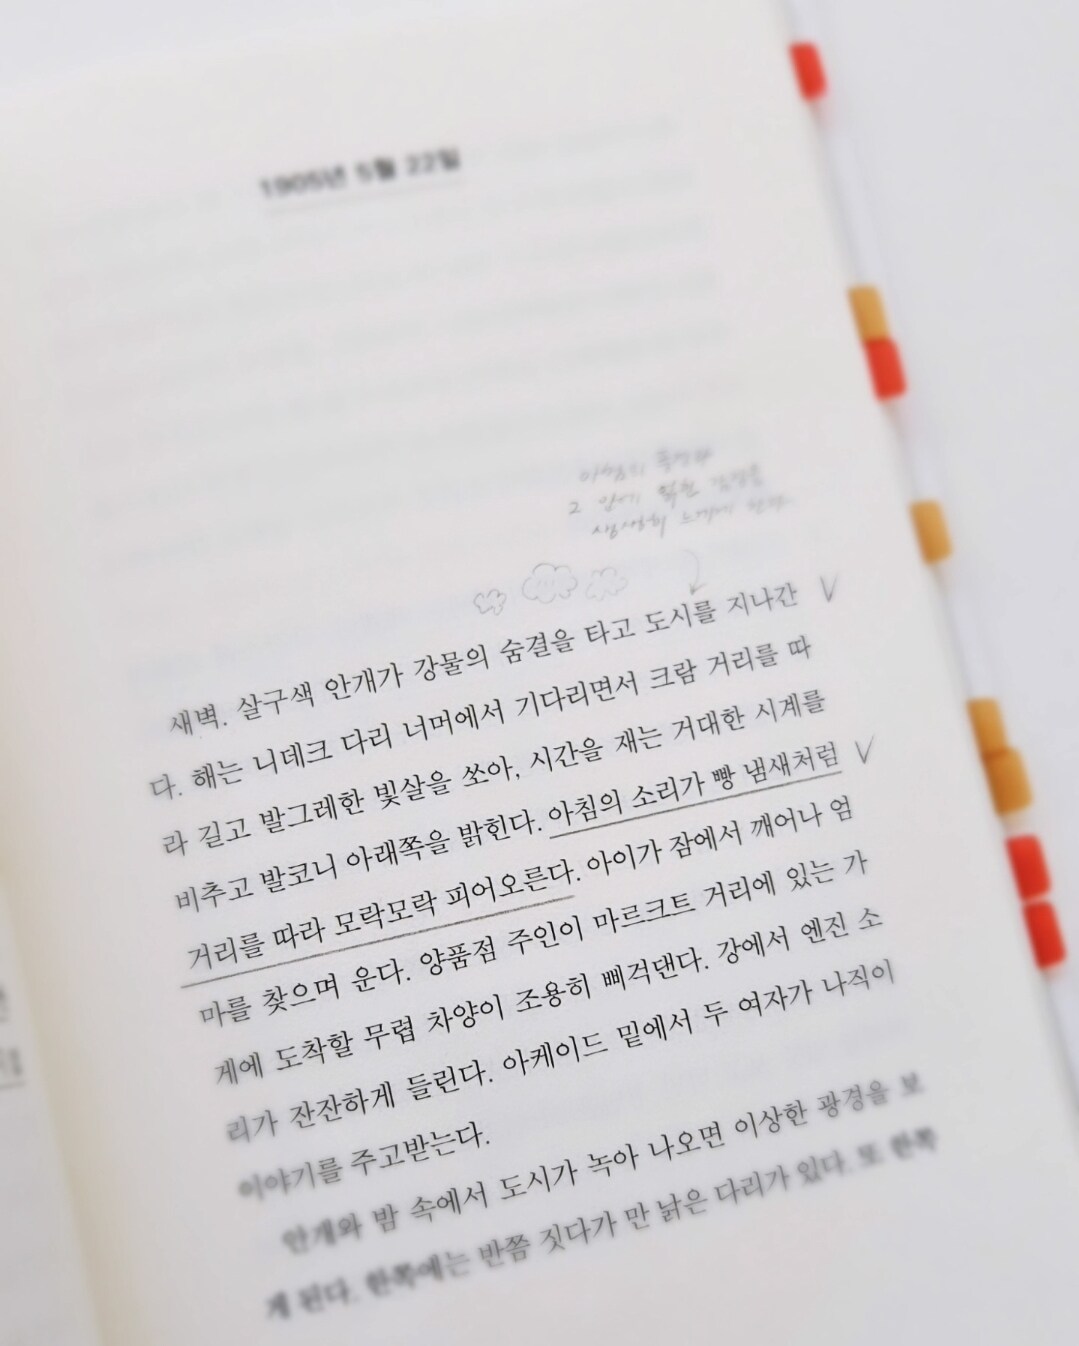 1905년 5월 22일
아침의 풍경과
2 앞에
생생히 느끼게 한다.
새벽. 살구색 안개가 강물의 숨결을 타고 도시를 지나간
다. 해는 니데크 다리 너머에서 기다리면서 크람 거리를 따
라 길고 발그레한 빛살을 쏘아, 시간을 재는 거대한 시계를
비추고 발코니 아래쪽을 밝힌다. 아침의 소리가 빵 냄새처럼
거리를 따라 모락모락 피어오른다. 아이가 잠에서 깨어나 엄
마를 찾으며 운다. 양품점 주인이 마르크트 거리에 있는 가
게에 도착할 무렵 차양이 조용히 삐걱댄다. 강에서 엔진 소
리가 잔잔하게 들린다. 아케이드 밑에서 두 여자가 나직이
이야기를 주고받는다.
안개와 밤 속에서 도시가 녹아 나오면 이상한 광경을 보
게 된다. 한쪽에는 반쯤 짓다가 만 낡은 다리가 있다. 또 한쪽